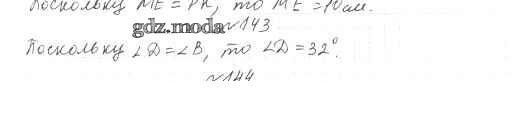 Поскольку ME = PK, то ME = 10 см.
gdz.moda №143
Поскольку ∠D = ∠B, то ∠D = 32°.
№144